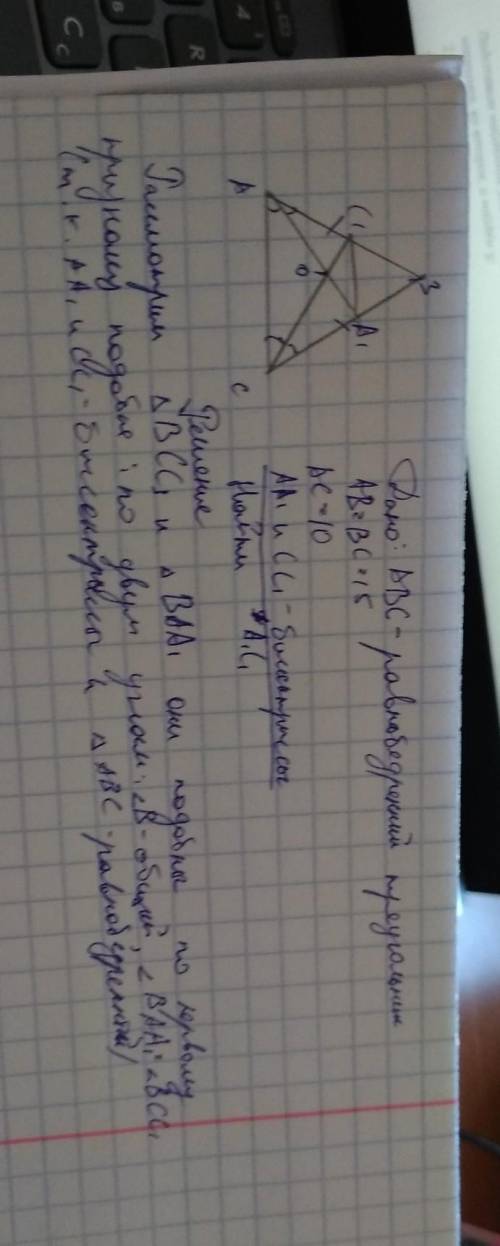 Дано: ABC - равнобедрений треугольник
AB=BC=15
AC=10
AA₁ и CC₁ - биссектрисы
Найти A₁C₁
B
C₁
A₁
O
A
C
Решение
Рассмотрим △BCC₁ и △BAA₁ они подобны по первому
признаку подобия: по двум углам: ∠B - общий, ∠BAA₁=∠BCC₁
(т.к. AA₁ и CC₁ - биссектриссы и △ABC - равнобедренный)
C
c
B
R